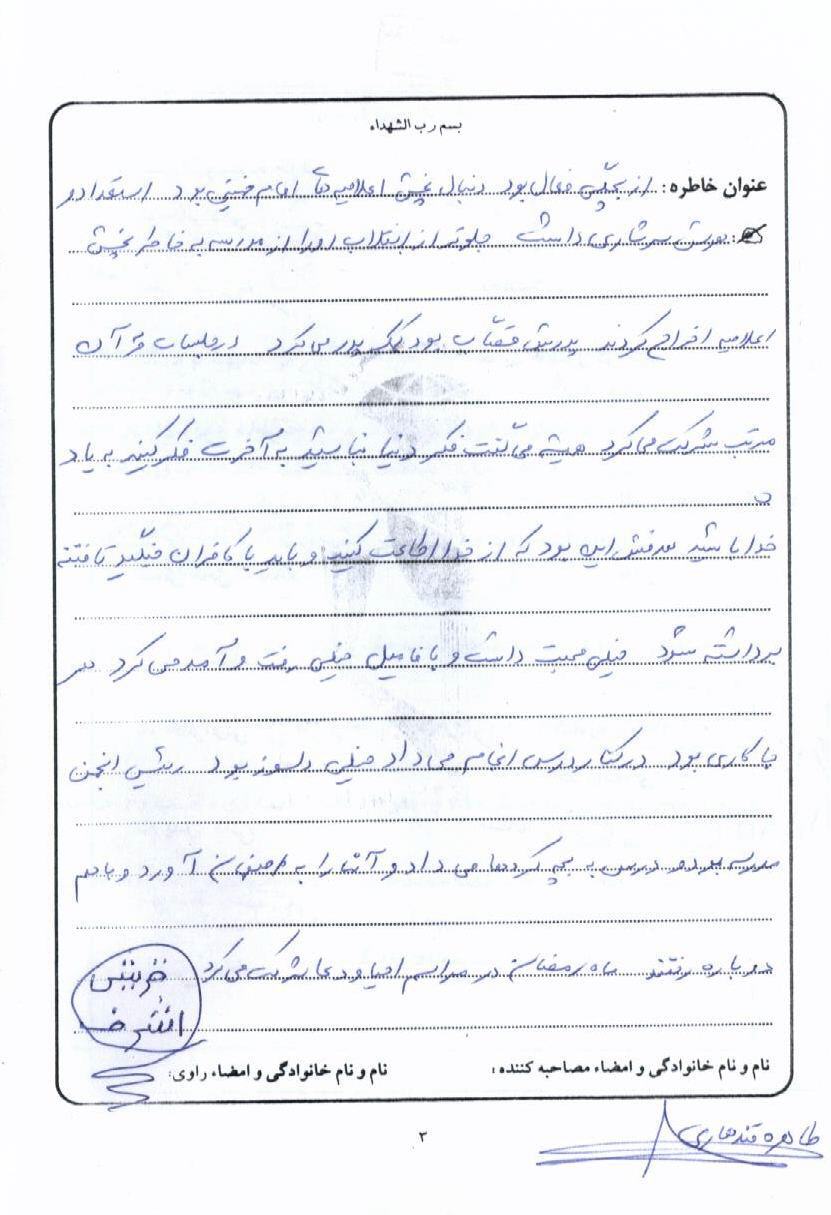 بسم رب الشهداء
عنوان خاطره: از بچگی فعال بود دنبال پخش اعلامیه های امام خمینی بود استعداد و
هوش سرشاری داشت جلوتر از انقلاب او را از مدرسه به خاطر پخش
اعلامیه اخراج کردند پدرش قصاب بود کمک پدر می کرد در جلسات قرآن
مرتب شرکت می کرد همیشه می گفت فکر دنیا نباشید به آخرت فکر کنید به یاد
خدا باشید هدفش این بود که از خدا اطاعت کنید و باید با کافران جنگید تا فتنه
برداشته شود خیلی محبت داشت و با فامیل خیلی رفت و آمد می کرد هر
جا کاری بود در کنار درس انجام می داد خیلی دلسوز بود رئیس انجمن
مدرسه بود و درس به بچه کردها می داد و آنها را به اصفهان آورد و با هم
دوباره رفتند ماه رمضان در مراسم احیا و دعا شرکت می کرد
نام و نام خانوادگی و امضاء مصاحبه کننده: نام و نام خانوادگی و امضاء راوی:
طاهره قندهاری
۳